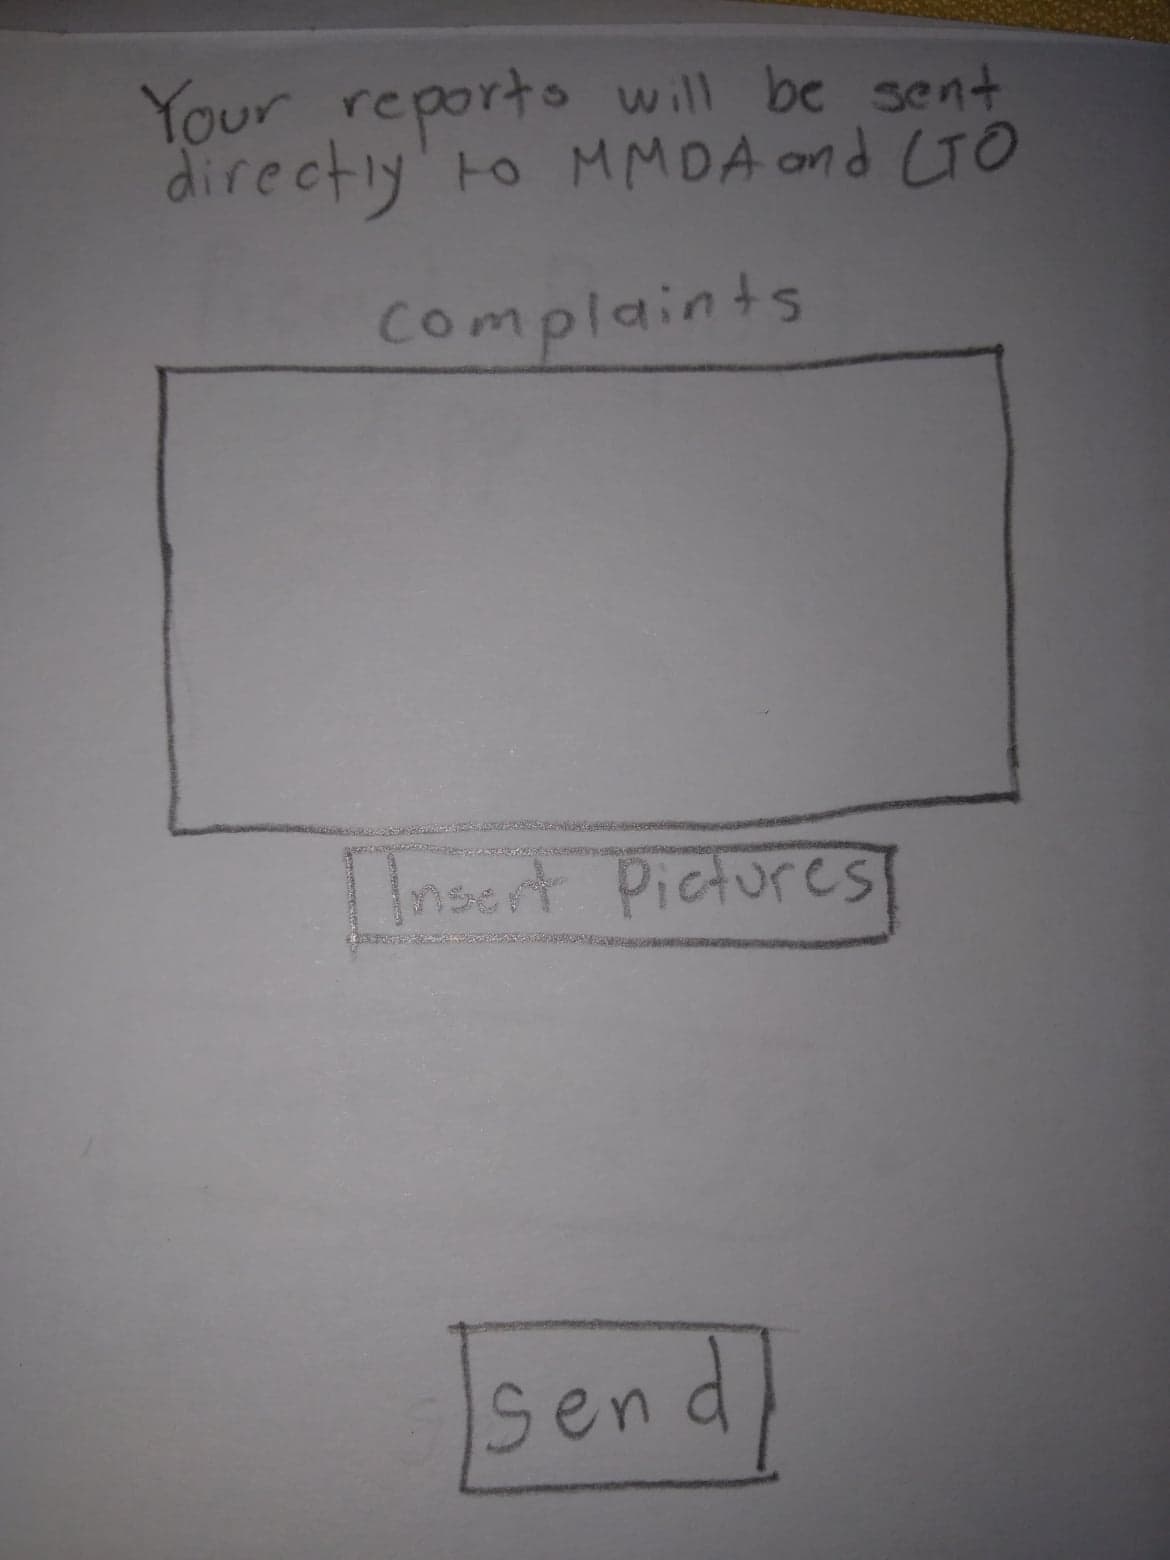 Your reports will be sent
directly to MMDA and LTO
complaints
Insert Pictures
send